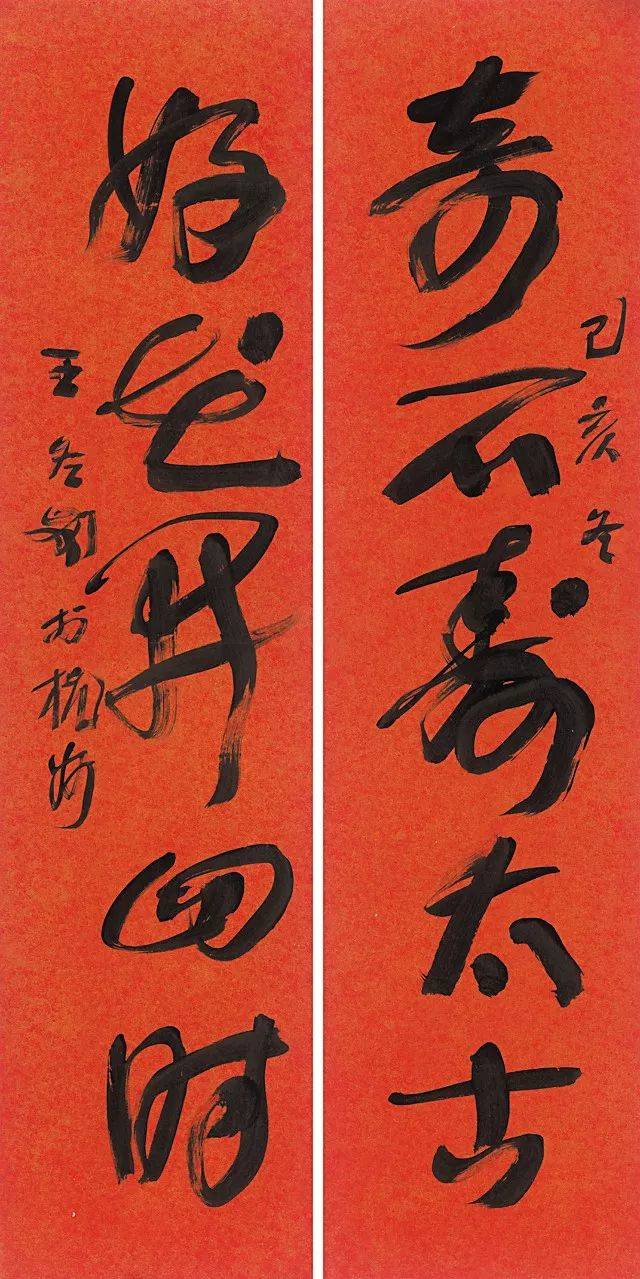 奇石寿太古
己亥冬
好花开四时
王冬龄于杭州